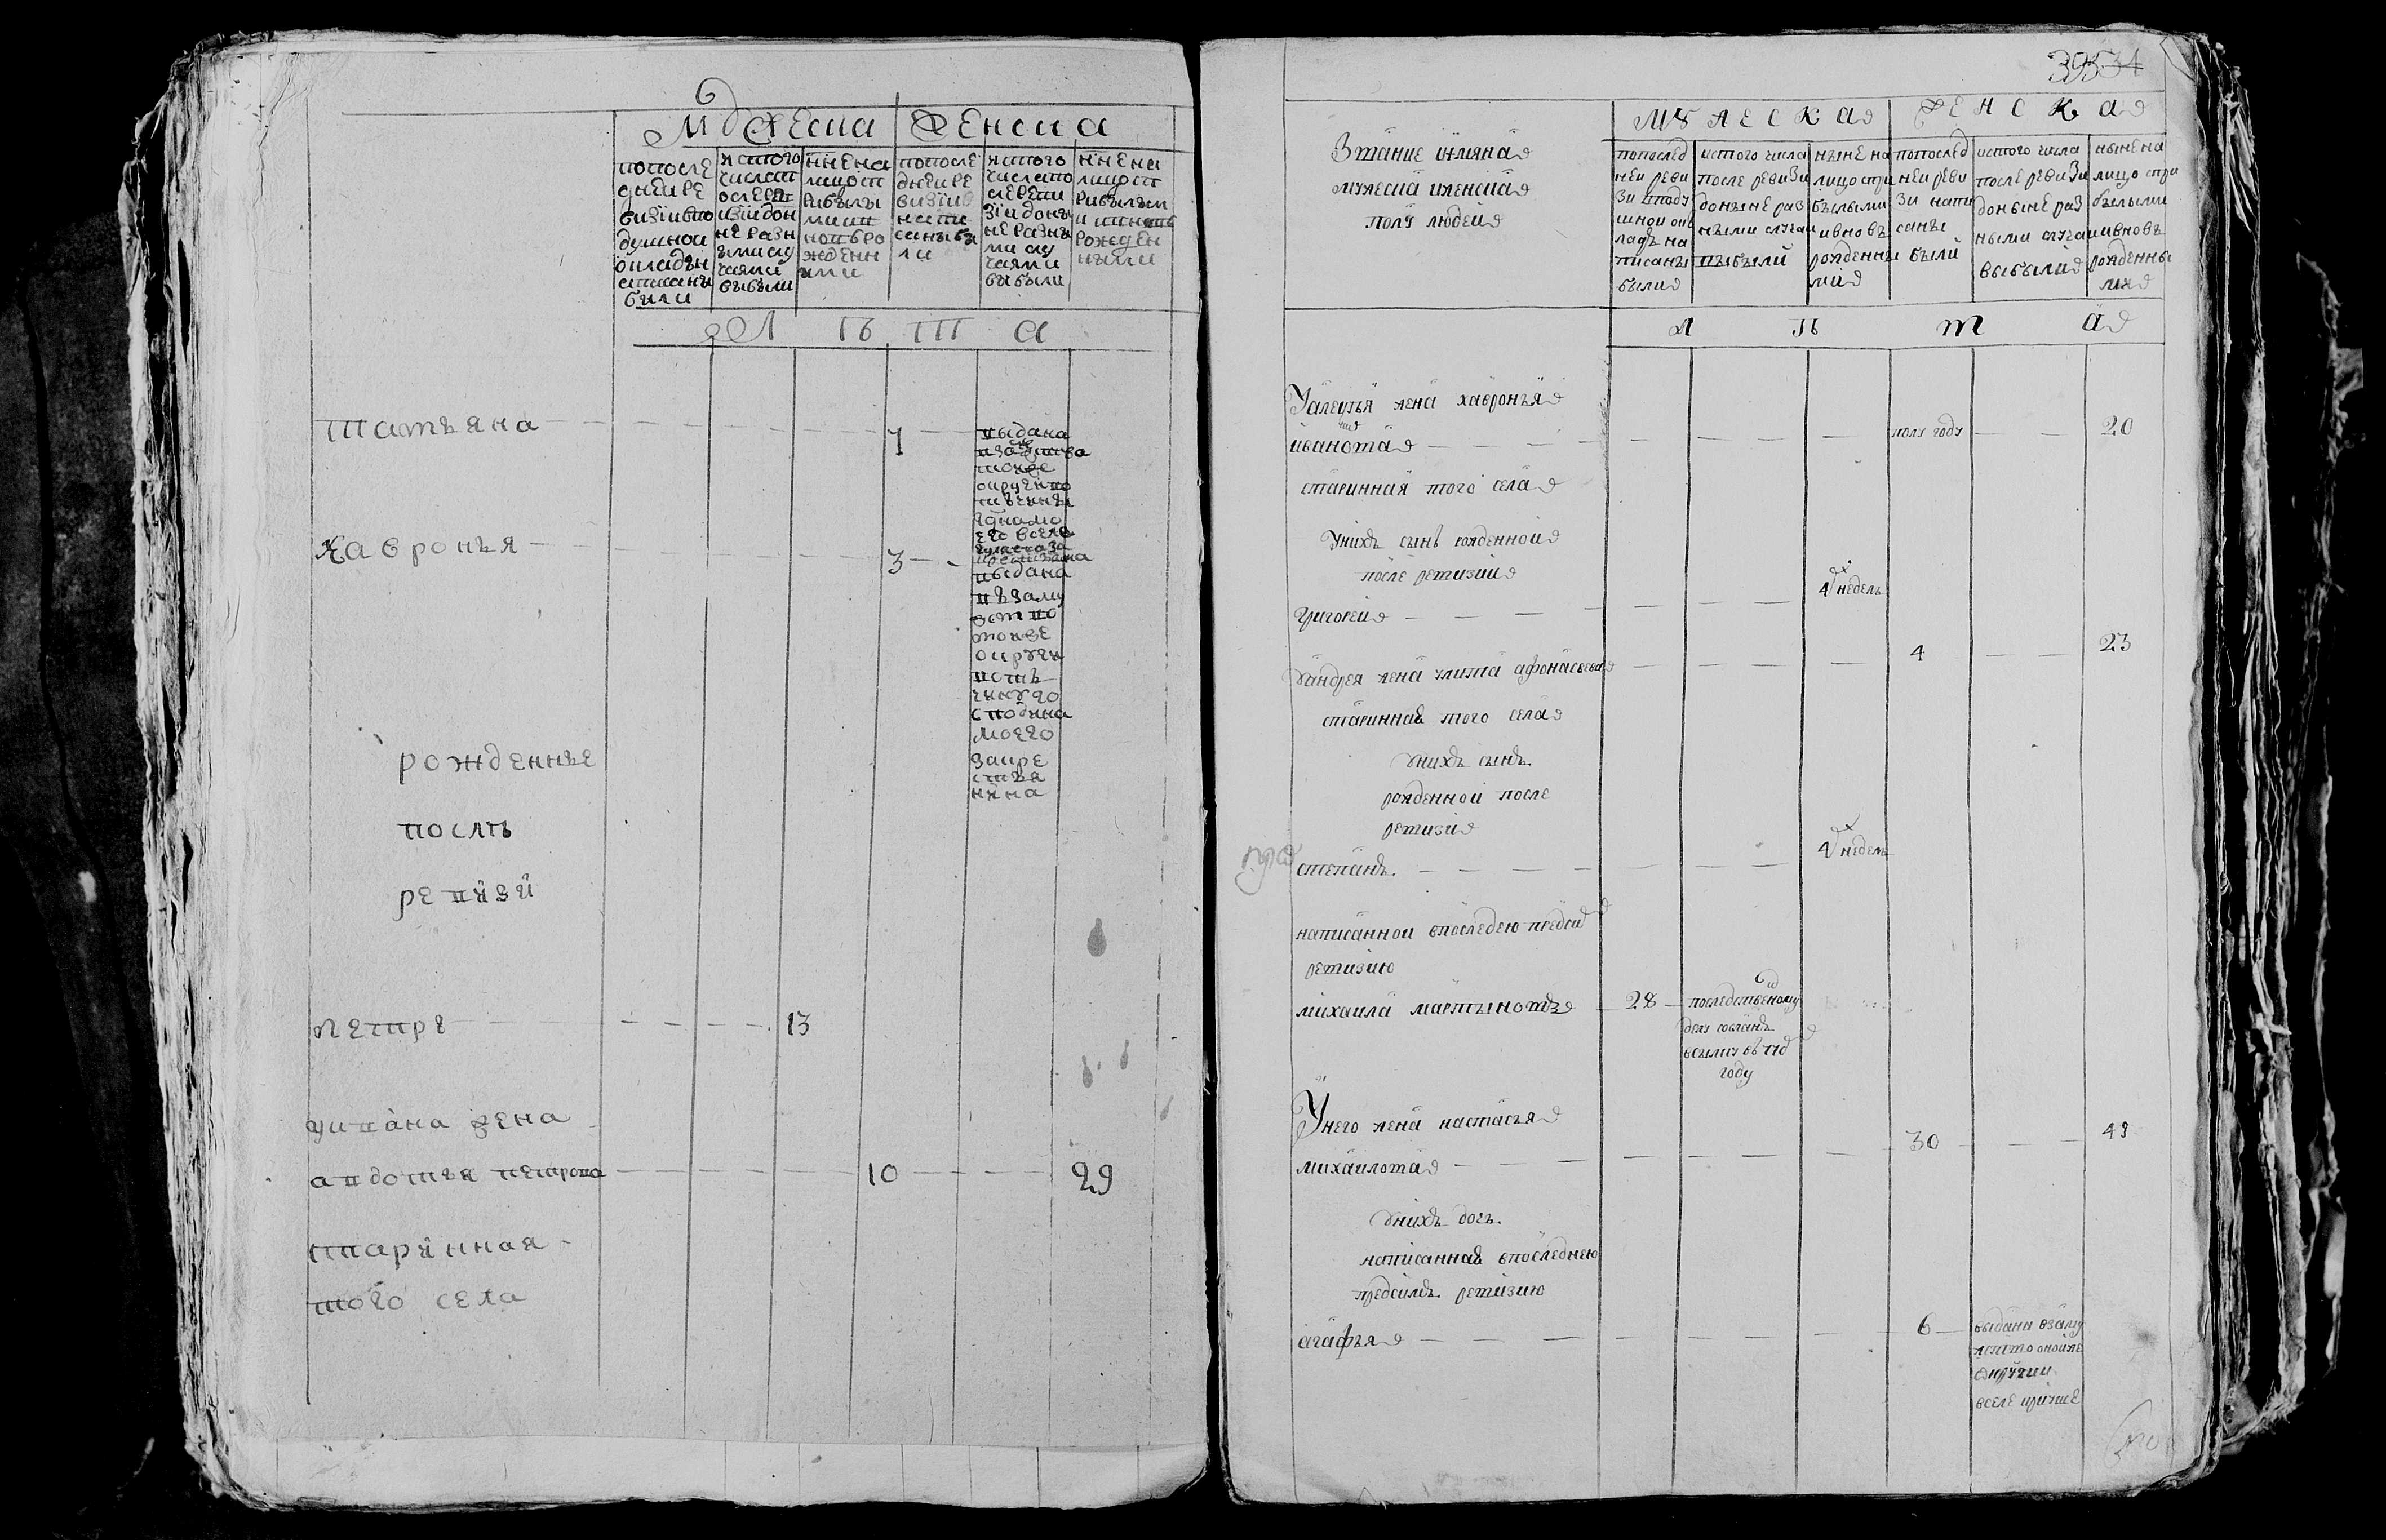 мужеска женска
попосле
днеи ре
визïи въ
душнои
окладъ н
аписаны
были
истого
числа п
осле ре
визïи дон
не разн
ыми слу
чаями
выбыли
нне на
лицо с п
рибылы
ми и в
новъ ро
жденн
ыми
попосле
днеи ре
визïи
напи
саны бы
ли
исто́го
числа по
сле реви
зïи доны
не разны
ми слу
чаями
выбыли
нне на
лицо сп
рибылым
и и вновь
рожден
ными
л ѣ т а
татьяна 7
выдана
взамуж
тоже
округи
хавронья 3
выдана
взаму
жство
тоже
округи
вотч
ину го
сподина
моего
закре
стья
нина
рожденные
послѣ
ревизи
петръ 13
жена
авдотья петрова 10 29
старинная
того села
39531
звание имяна
мужеска иженска
полу людей
мужеска женска
попослед
неи реви
зи вподу
шнои ок
ладъ на
писаны
были
истого числа
после ревизи
доныне раз
ными случаи
выбыли
ныне на
лицо спри
былыми
ивновъ
рожденны
ми
попослед
неи реви
зи напи
саны
были
истого числа
после ревизи
доныне раз
ными случаи
выбыли
ныне на
лицо спри
былыми
ивновъ
рожденны
ми
л ѣ т а
жена хавронья
иванова полу году 20
старинная того села
унихъ сынъ рожденной
после ревизии
григореи 4 недель
уандрея жена улита афонасьева 4 23
старинная того села
унихъ сынъ
рожденнои после
ревизи
степанъ 4 недель
написаннои впоследнею предсим
ревизию
михаила мартыновъ 28 последственому
делу сосланъ
году
Унего жена настасья
михаилова 30 49
унихъ дочь
написанная впоследнею
предсимъ ревизию
агафья 6 выдана взаму
жство оноиже
округи
вселе